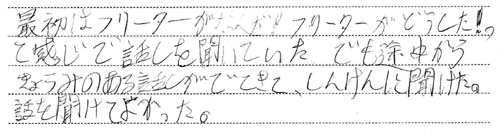 最初はフリーターがなんだ!!フリーターがどうした!!っ
て感じで話しを聞いていた でも途中から
きょうみのある話しがでてきて、しんけんに聞けた。
話を聞けてよかった。